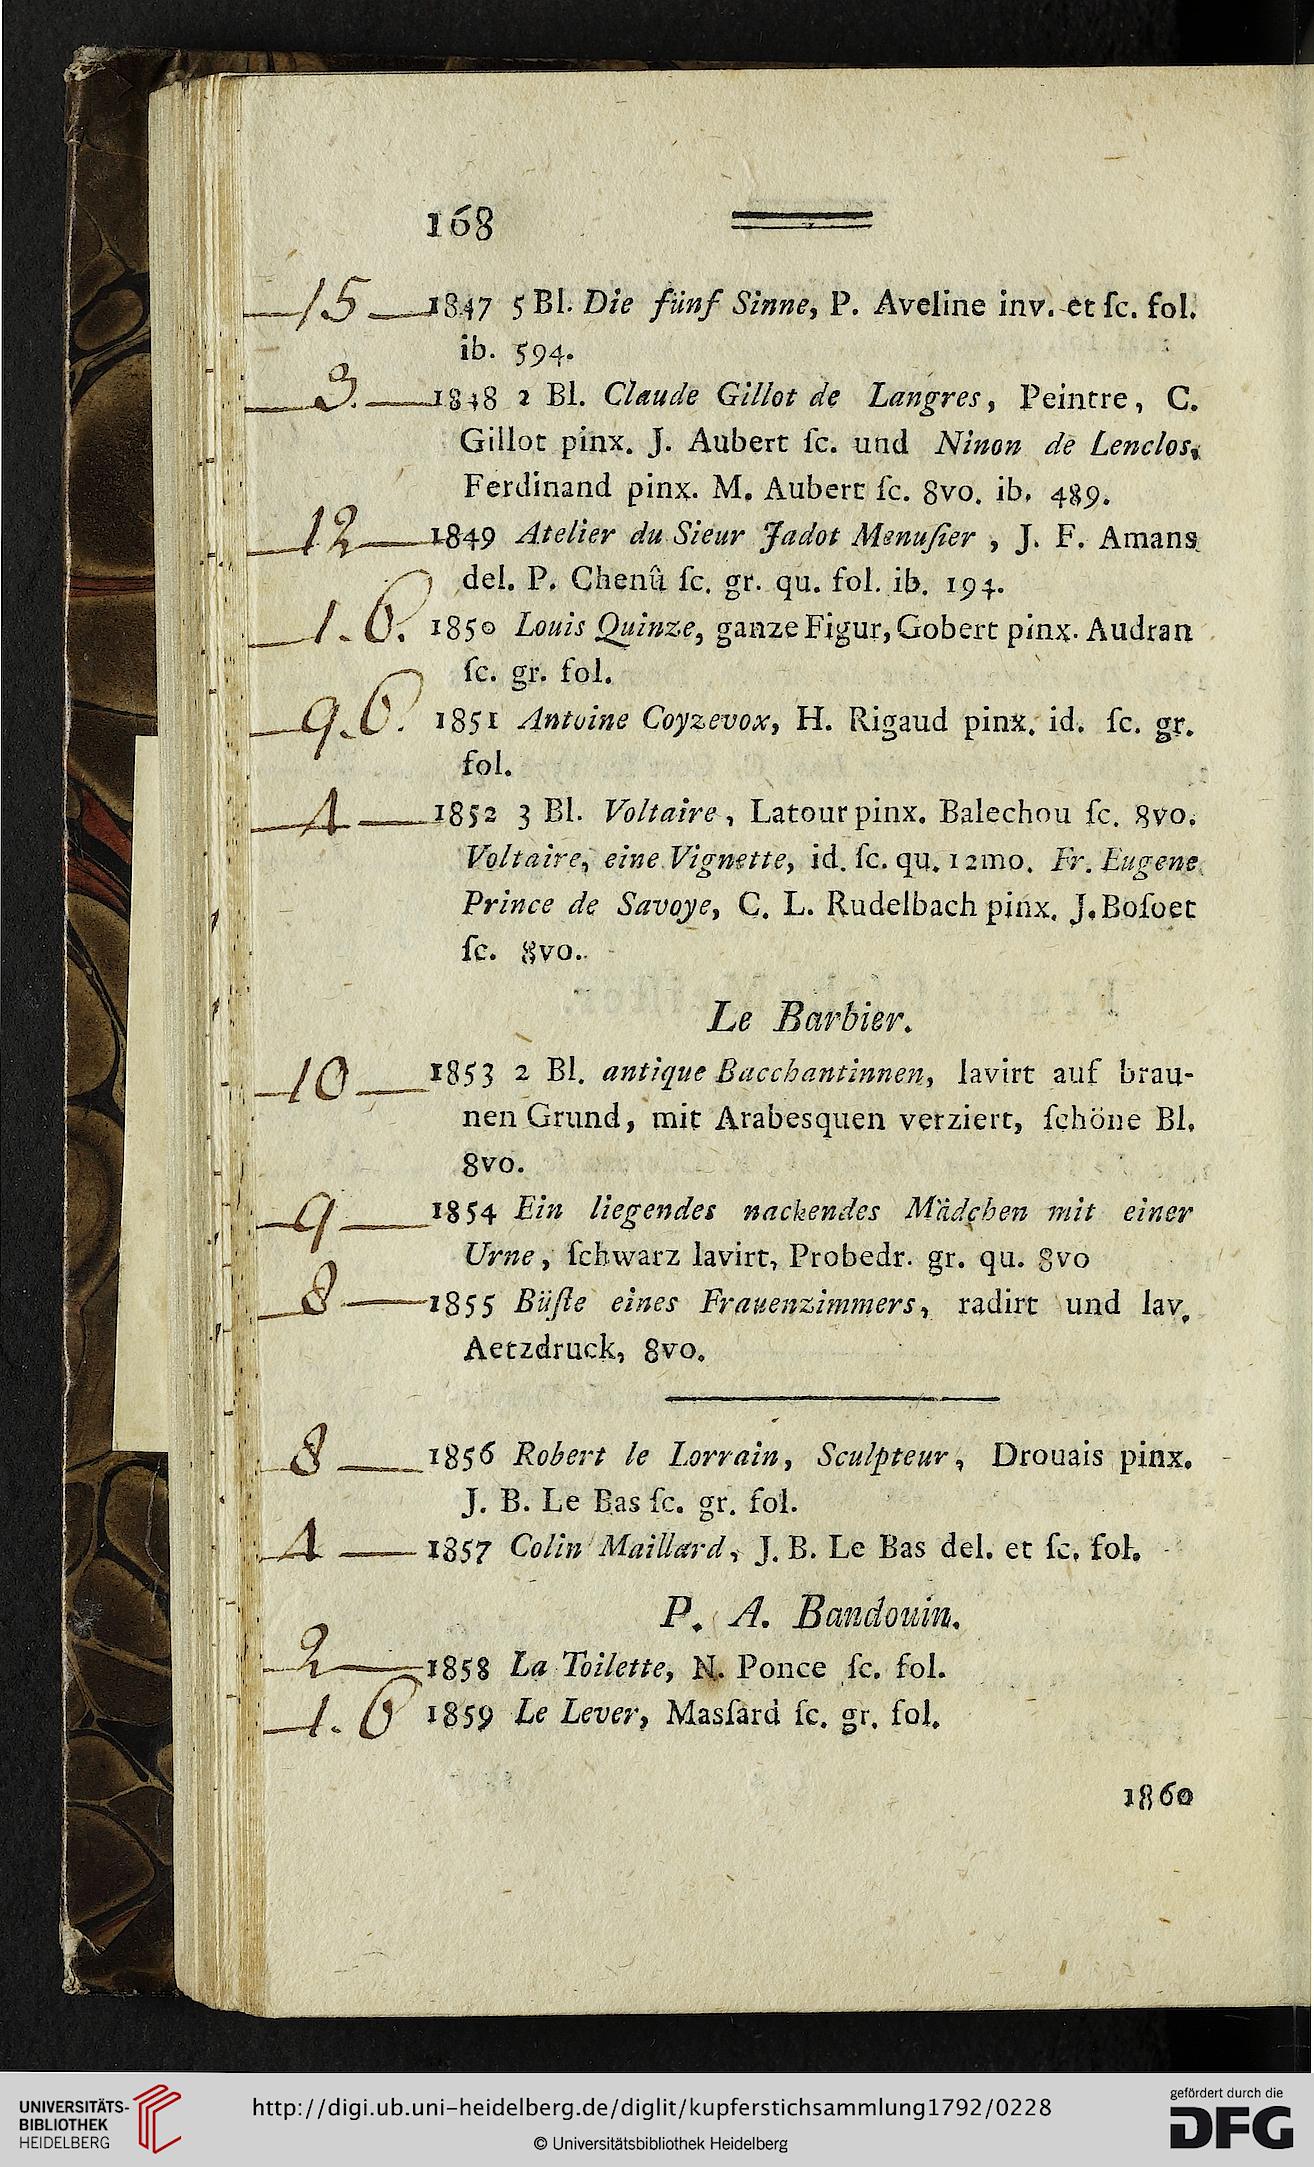 168
15 — 1847 5 Bl. Die fünf Sinne, P. Aveline inv. et ſc. fol.
ib. 594.
3. — 1848 2 Bl. Claude Gillot de Langres, Peintre, C.
Gillot pinx. J. Aubert ſc. und Ninon de Lenclos,
Ferdinand pinx. M. Aubert ſc. 8vo. ib. 489.
12 — 1849 Atelier du Sieur Jadot Menuſier , J. F. Amans
del. P. Chenû ſc. gr. qu. fol. ib. 194.
1. 6. 1850 Louis Quinze, ganze Figur, Gobert pinx. Audran
ſc. gr. fol.
9. 6. 1851 Antoine Coyzevox, H. Rigaud pinx. id. ſc. gr.
fol.
4 — 1852 3 Bl. Voltaire, Latour pinx. Balechou ſc. 8vo.
Voltaire, eine Vignette, id. ſc. qu. 12mo. Fr. Eugene
Prince de Savoye, C. L. Rudelbach pinx. J. Boſoet
ſc. 8vo.
Le Barbier.
10 — 1853 2 Bl. antique Bacchantinnen, lavirt auf brau-
nen Grund, mit Arabesquen verziert, ſchöne Bl.
8vo.
9 — 1854 Ein liegendes nackendes Mädchen mit einer
Urne, ſchwarz lavirt, Probedr. gr. qu. 8vo
8 — 1855 Büſte eines Frauenzimmers, radirt und lav.
Aetzdruck, 8vo.
8 — 1856 Robert le Lorrain, Sculpteur, Drouais pinx.
J. B. Le Bas ſc. gr. fol.
4 — 1857 Colin Maillard, J. B. Le Bas del. et ſc. fol.
P. A. Bandouin.
2 — 1858 La Toilette, N. Ponce ſc. fol.
1. 6 1859 Le Lever, Masſard ſc. gr. fol.
1860
UNIVERSITÄTS-
BIBLIOTHEK
HEIDELBERG
http://digi.ub.uni-heidelberg.de/diglit/kupferstichsammlung1792/0228
© Universitätsbibliothek Heidelberg
gefördert durch die
DFG